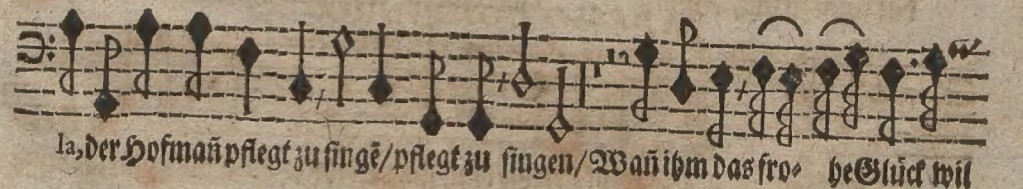 la, der Hofmañ pflegt zu singē/ pflegt zu singen/ Wañ ihm das fro- he Glück wil